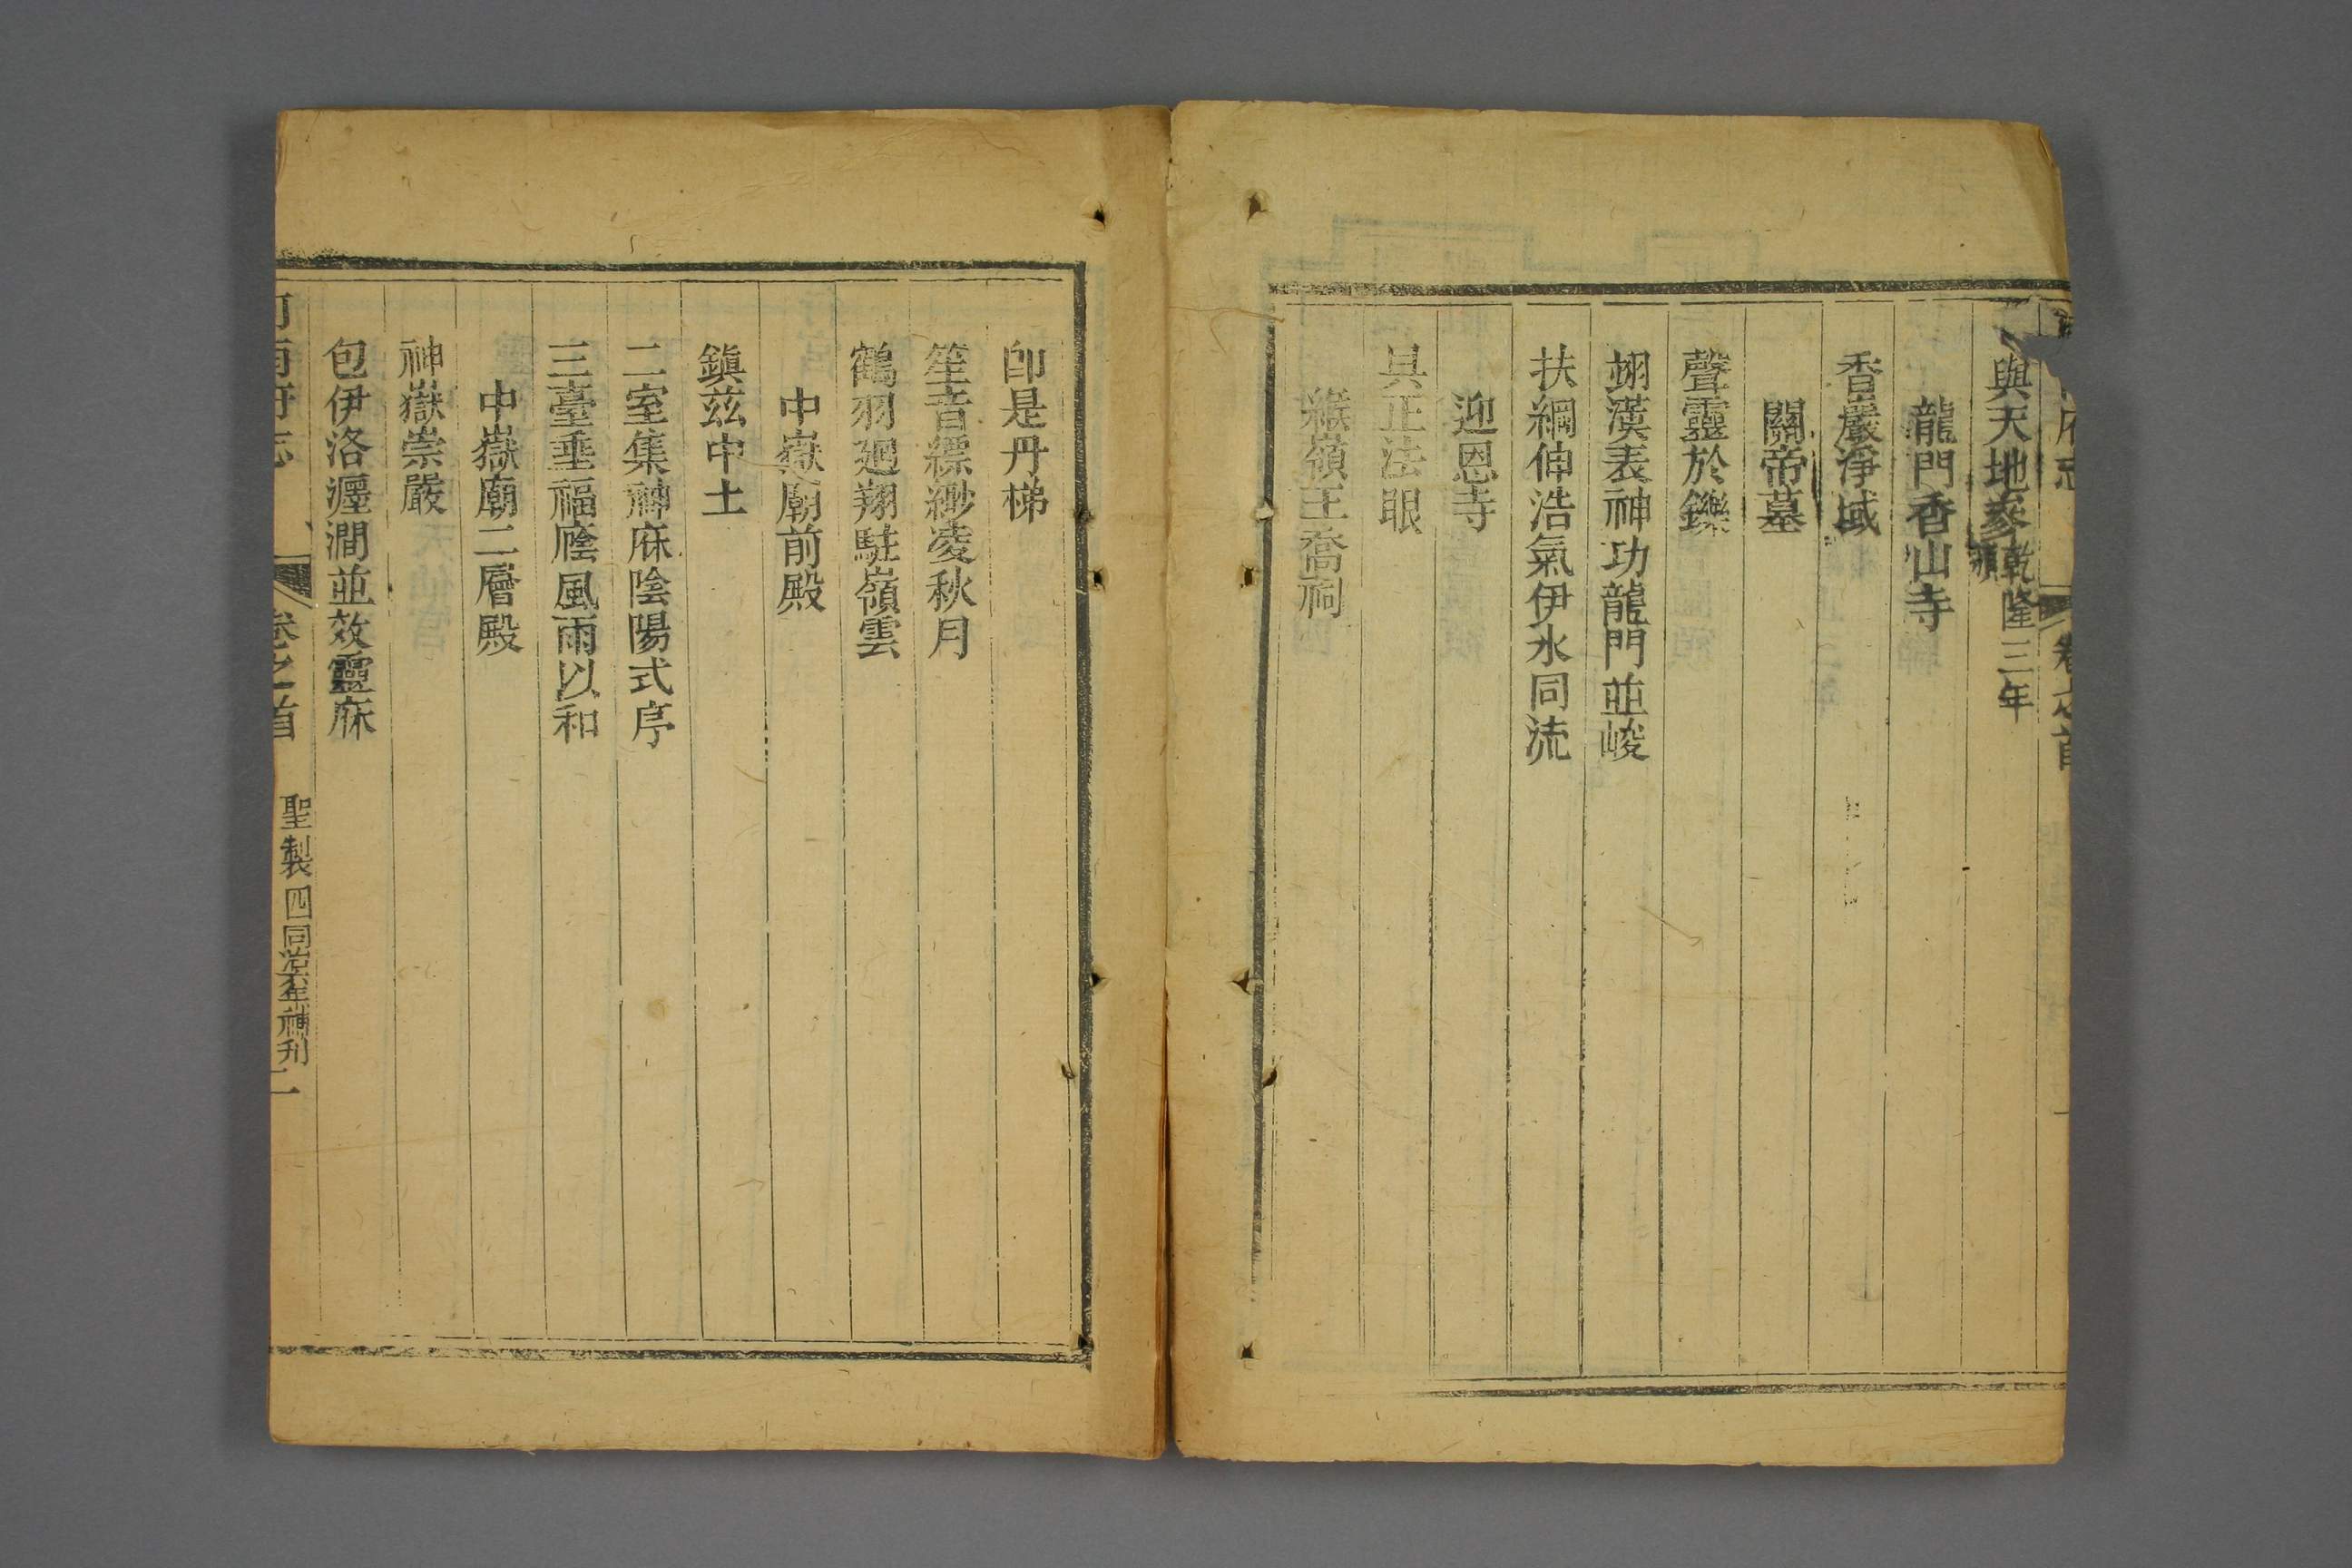 府志
卷之首
與天地參乾隆三年頒
龍門香山寺
香巖淨域
關帝墓
聲靈於鑠
翊漢表神功龍門並峻
扶綱伸浩氣伊水同流
迎恩寺
具正法眼
緱嶺王喬祠
卽是丹梯
笙音縹緲凌秋月
鶴羽廻翔駐嶺雲
中嶽廟前殿
鎮茲中土
二室集神庥陰陽式序
三臺垂福廕風雨以和
中嶽廟二層殿
神嶽崇嚴
包伊洛瀍澗並效靈庥
河南府志
卷之首
聖製四同治六年補刊
二